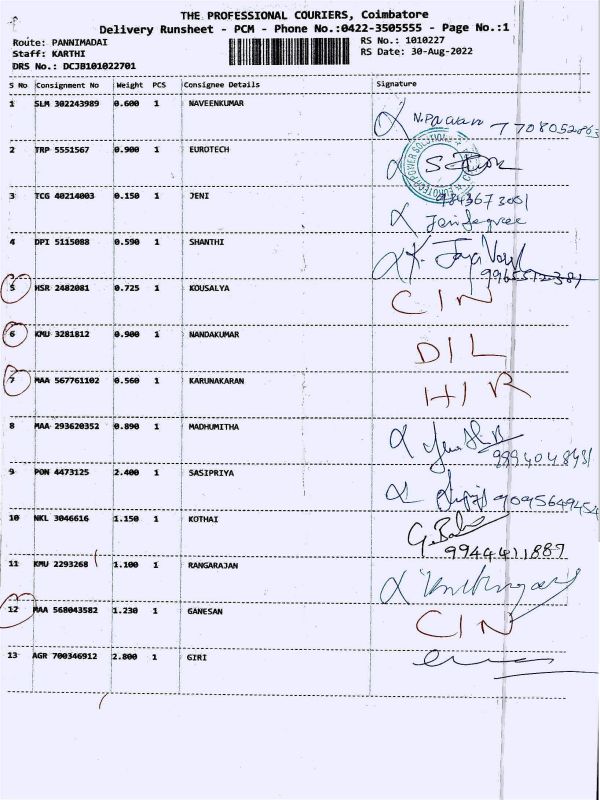 THE PROFESSIONAL COURIERS, Coimbatore
Delivery Runsheet - PCM - Phone No.:0422-3505555 - Page No.:1
Route: PANNIMADAI
Staff: KARTHI
DRS No.: DCJB101022701
RS No.: 1010227
RS Date: 30-Aug-2022
S No Consignment No Weight PCS Consignee Details Signature
1 SLM 302243989 0.600 1 NAVEENKUMAR N.Pawan 7708052863
2 TRP 5551567 0.900 1 EUROTECH
9843673001
3 TCG 40214003 0.150 1 JENI
4 DPI 5115088 0.590 1 SHANTHI
5 HSR 2482081 0.725 1 KOUSALYA CIN
6 KMU 3281812 0.900 1 NANDAKUMAR DIL
7 MAA 567761102 0.560 1 KARUNAKARAN HIR
8 MAA 293620352 0.890 1 MADHUMITHA
9 PON 4473125 2.400 1 SASIPRIYA 9095649454
10 NKL 3046616 1.150 1 KOTHAI
9944411889
11 KMU 2293268 1.100 1 RANGARAJAN
12 MAA 568043582 1.230 1 GANESAN CIN
13 AGR 700346912 2.800 1 GIRI